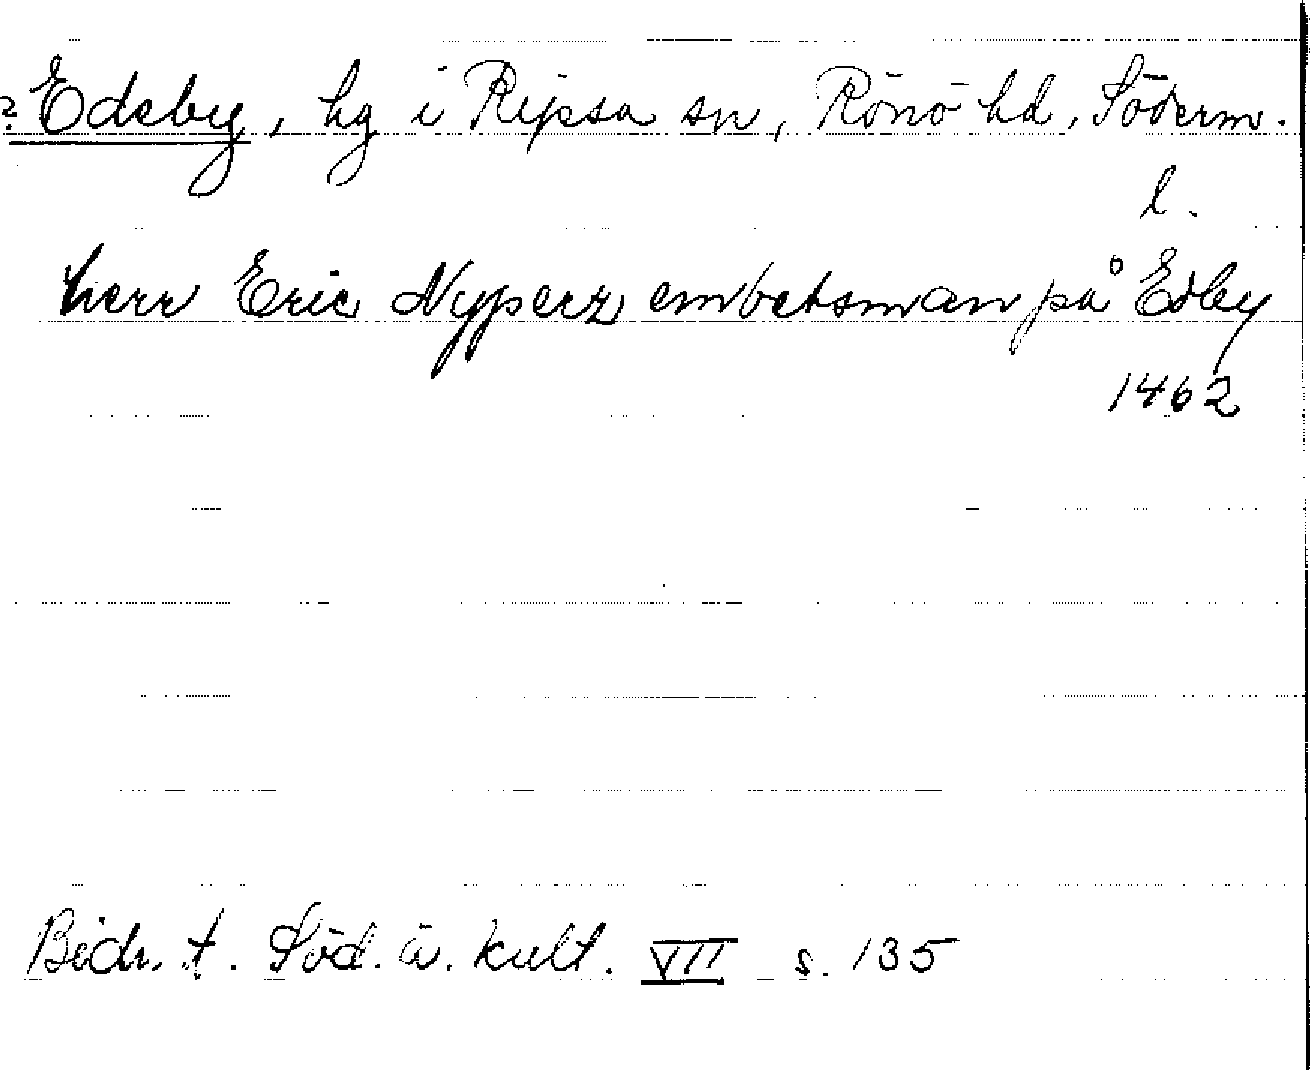 ? Edeby, hg i Ripsa sn, Rönö hd, Söderm.
l.
herr Eric Nyperz embetsman på Edby
1462
Bidr. t. Söd. ä. kult. VII s. 135